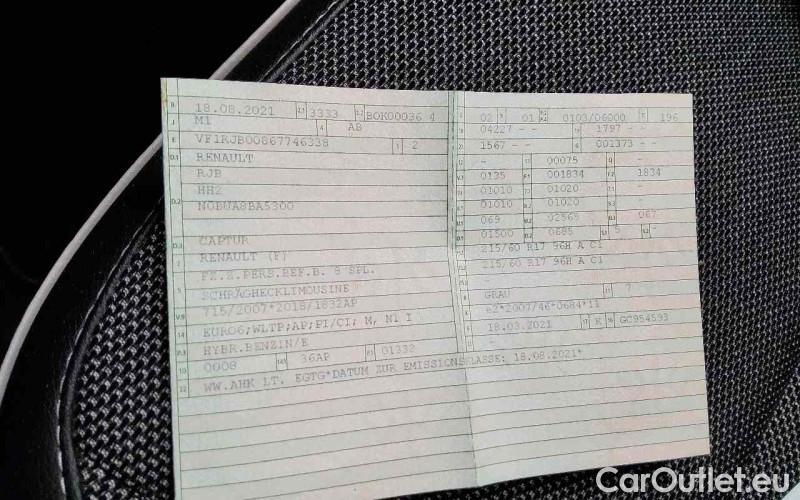 B 18.08.2021 2.1 3333 2.2 BOK00036 4
J M1 4 AB
E VF1RJB00867746338 3 2
D.1 RENAULT
RJB
D.2 HH2
N0BUA8BA5300
D.3 CAPTUR
2 RENAULT (F)
5 FZ.Z.PERS.BEF.B. 8 SPL.
SCHRÄGHECKLIMOUSINE
V.9 715/2007*2018/1832AP
14 EURO6;WLTP;AP;PI/CI; M, N1 I
P.3 HYBR.BENZIN/E
10 0008 14.1 36AP P.1 01332
22 WW.AHK LT. EGTG*DATUM ZUR EMISSIONSKLASSE: 18.08.2021*
02 9 01 P.2 P.4 0103/06000 T 196
18 04227 - - 19 1797 - -
1567 - - G 001373 - -
12 - 13 00075 Q -
V.7 0135 F.1 001834 F.2 1834
01010 01020 -
01010 01020 -
U.1 069 U.2 02565 U.3 067
O.1 01500 O.2 0685 S.1 5 S.2 -
215/60 R17 96H A C1
215/60 R17 96H A C1
R GRAU 11 7
K e2*2007/46*0684*11
6 18.03.2021 17 K 16 GC954593
CarOutlet.eu